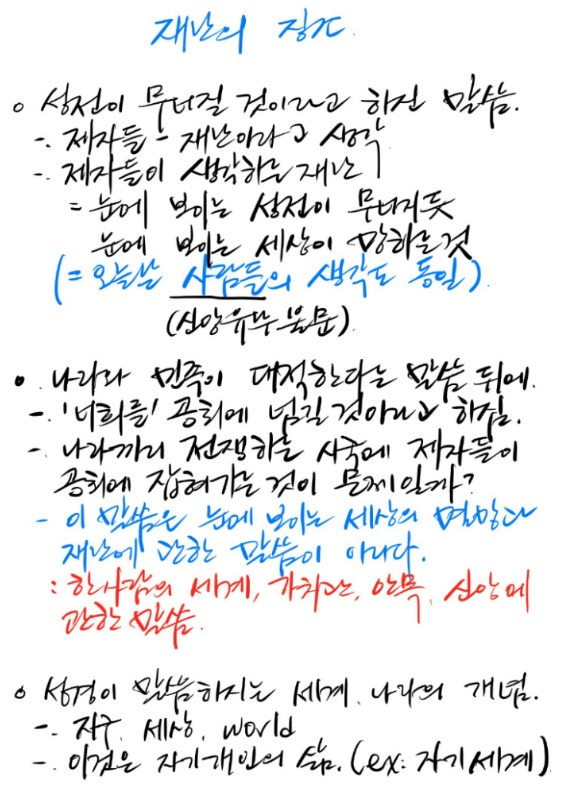 재난의 징조
○ 성전이 무너질 것이라고 하신 말씀.
-. 제자들 - 재난이라고 생각
-. 제자들이 생각하는 재난
= 눈에 보이는 성전이 무너지듯
눈에 보이는 세상이 망하는 것
(= 오늘날 사람들의 생각도 동일)
(신앙유무 불문).
● 나라와 민족이 대적한다는 말씀 뒤에.
-. '너희를' 공회에 넘길 것이라고 하심.
-. 나라끼리 전쟁하는 시국에 제자들이
공회에 잡혀가는 것이 문제일까?
- 이 말씀은 눈에 보이는 세상의 멸망과
재난에 관한 말씀이 아니다.
: 한사람의 세계, 가치관, 안목, 신앙에
관한 말씀.
○ 성경이 말씀하시는 세계, 나라의 개념.
-. 지구, 세상, world
-. 이것은 자기개인의 삶. (ex: 자기세계)